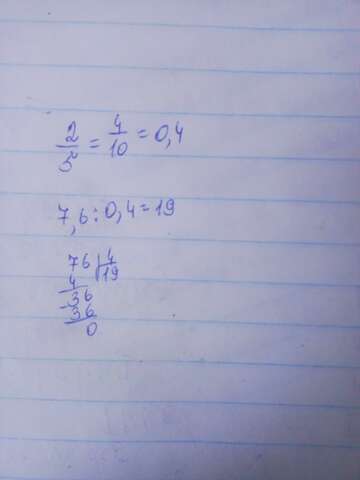 2/5 = 4/10 = 0,4
7,6 : 0,4 = 19
76 | 4
4 19
36
36
0